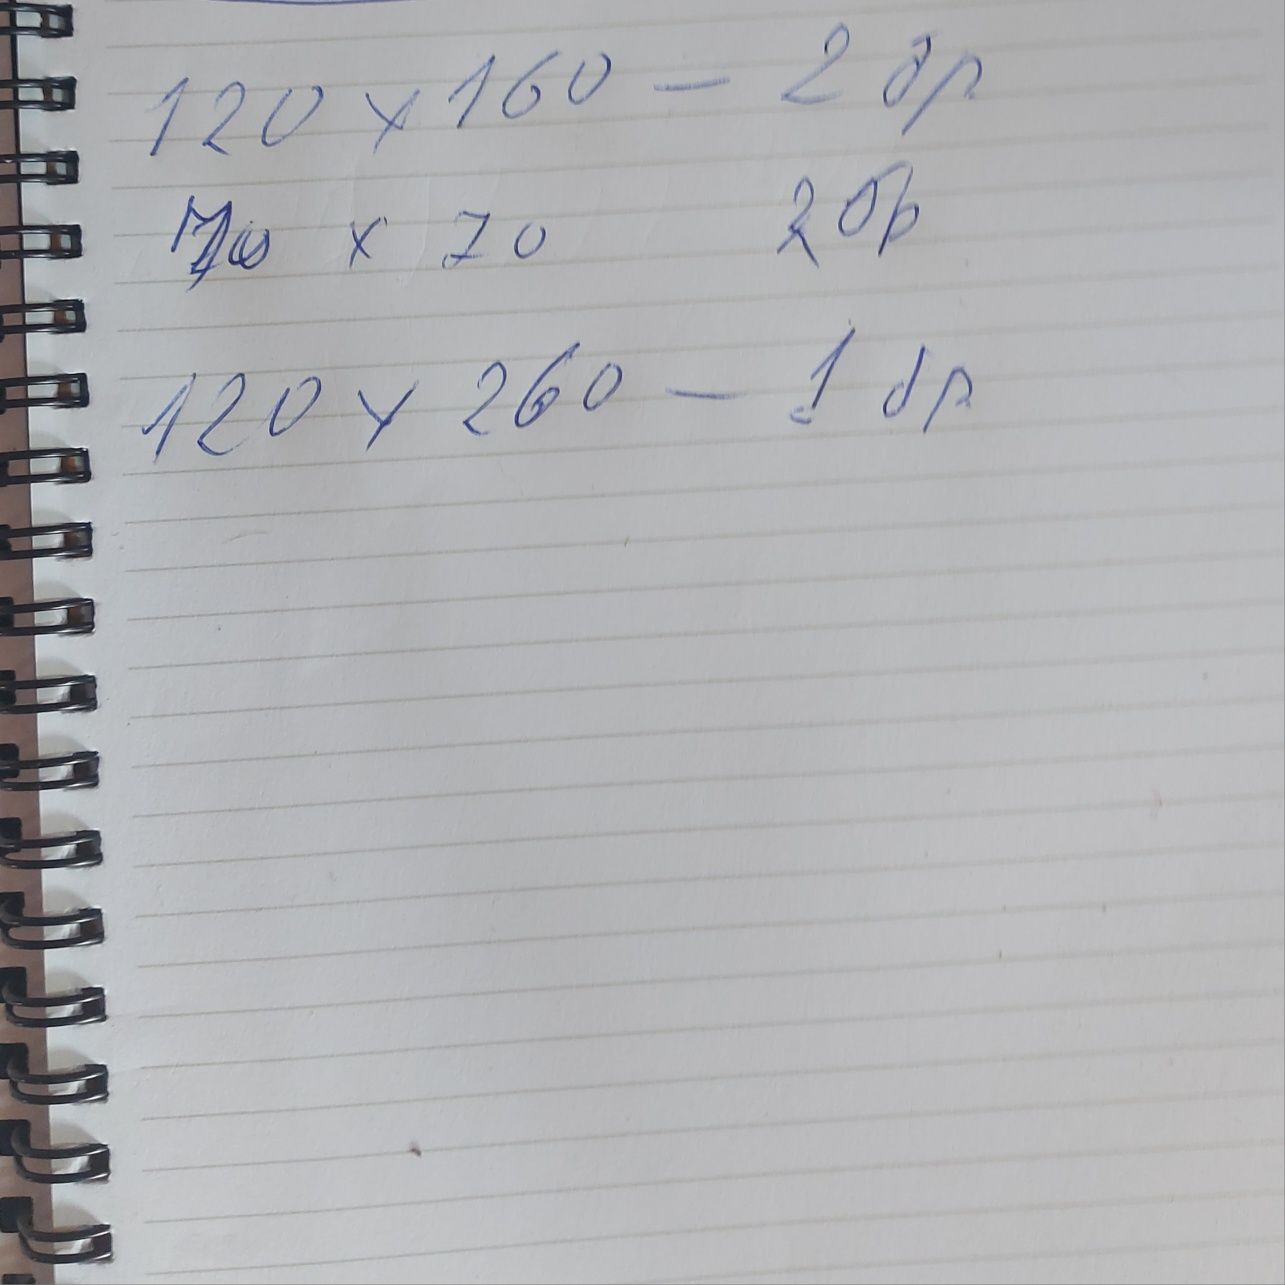 120 x 160 — 2 бр
70 x 70 2 бр
120 x 260 — 1 бр